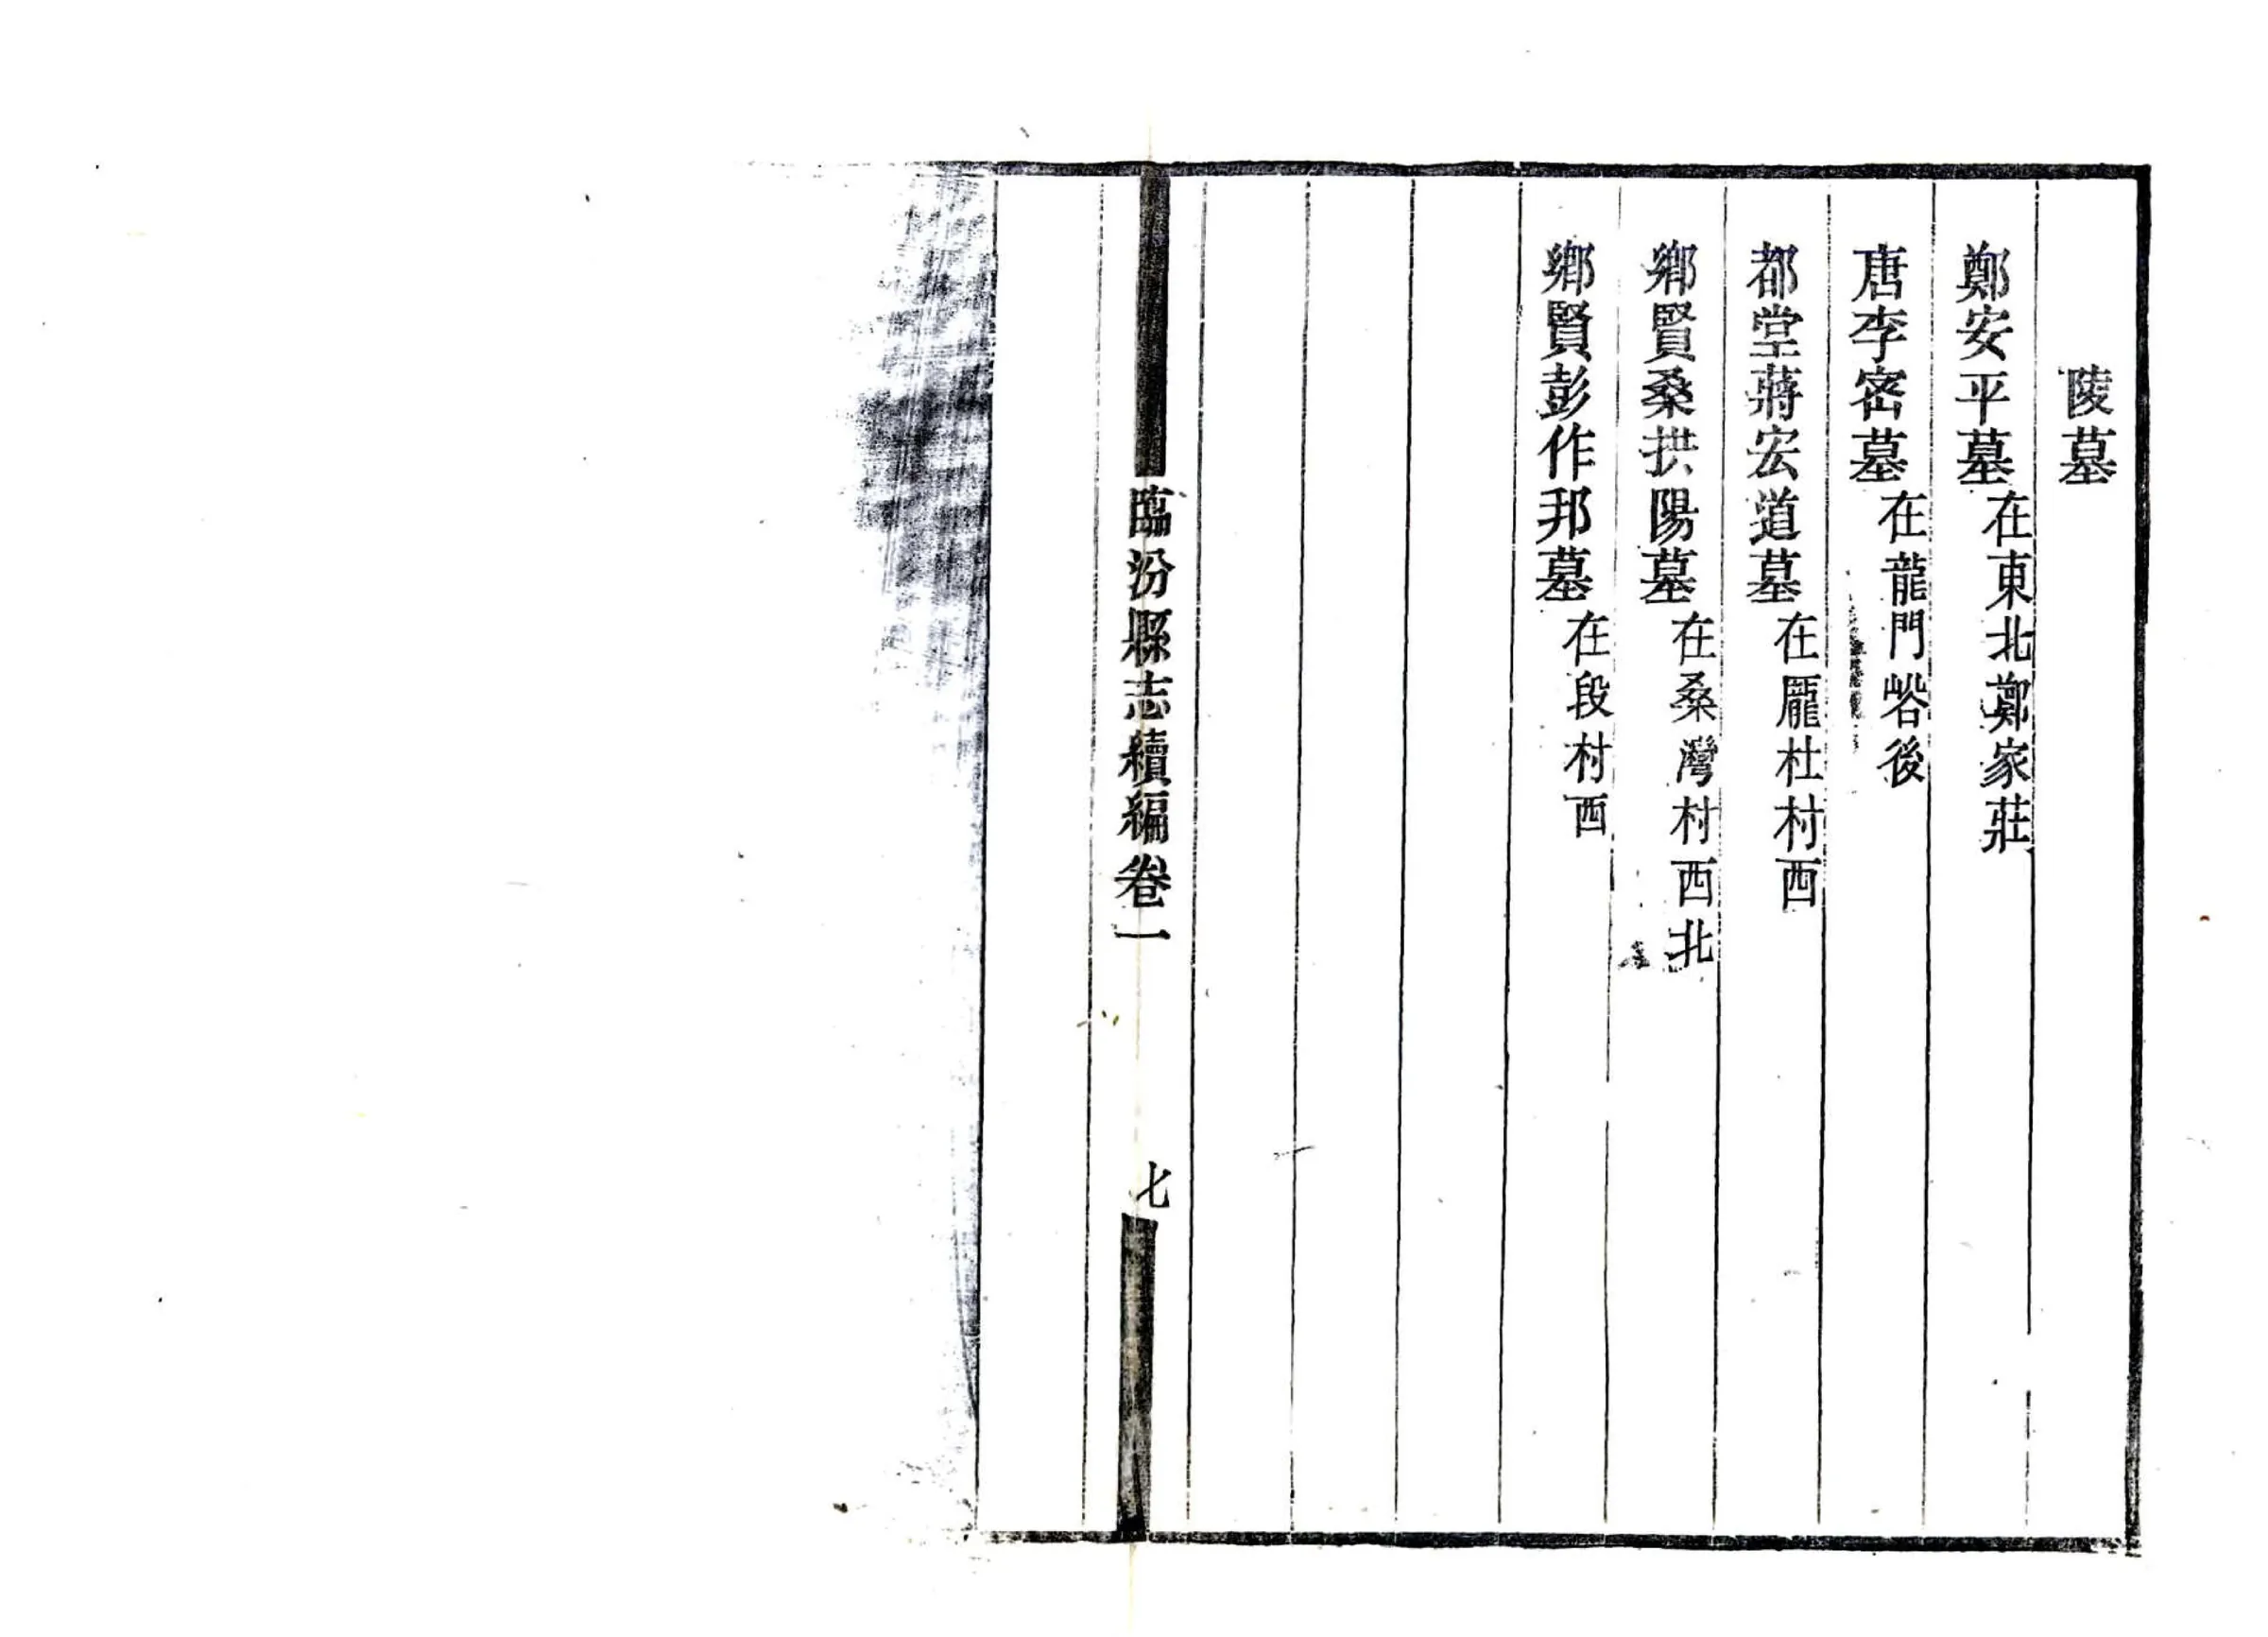 陵墓
鄭安平墓在東北鄭家莊
唐李密墓在龍門峪後
都堂蔣宏道墓在龎杜村西
鄉賢桑拱陽墓在桑灣村西北
鄉賢彭作邦墓在段村西
臨汾縣志續編卷一
七